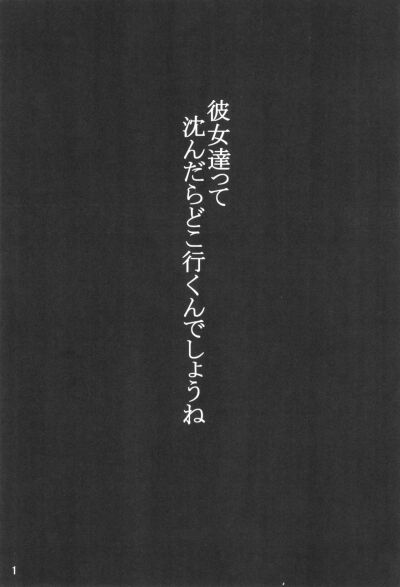 彼女達って
沈んだらどこ行くんでしょうね
1